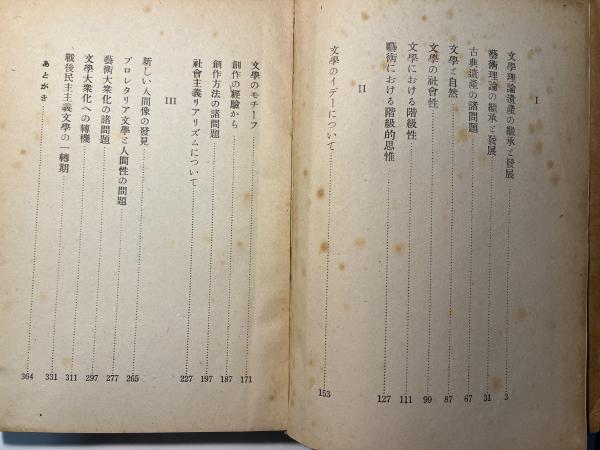 I
文學理論遺產の繼承と發展……3
藝術理論の繼承と發展……31
古典遺產の諸問題……67
文學と自然……87
文學の社會性……99
文學における階級性……111
藝術における階級的思惟……127
II
文學のイデーについて……153
文學のモチーフ……171
創作の經驗から……187
創作方法の諸問題……197
社會主義リアリズムについて……227
III
新しい人間像の發見……265
プロレタリア文學と人間性の問題……277
藝術大衆化の諸問題……297
文學大衆化への轉機……311
戰後民主主義文學の一轉期……331
あとがき……364